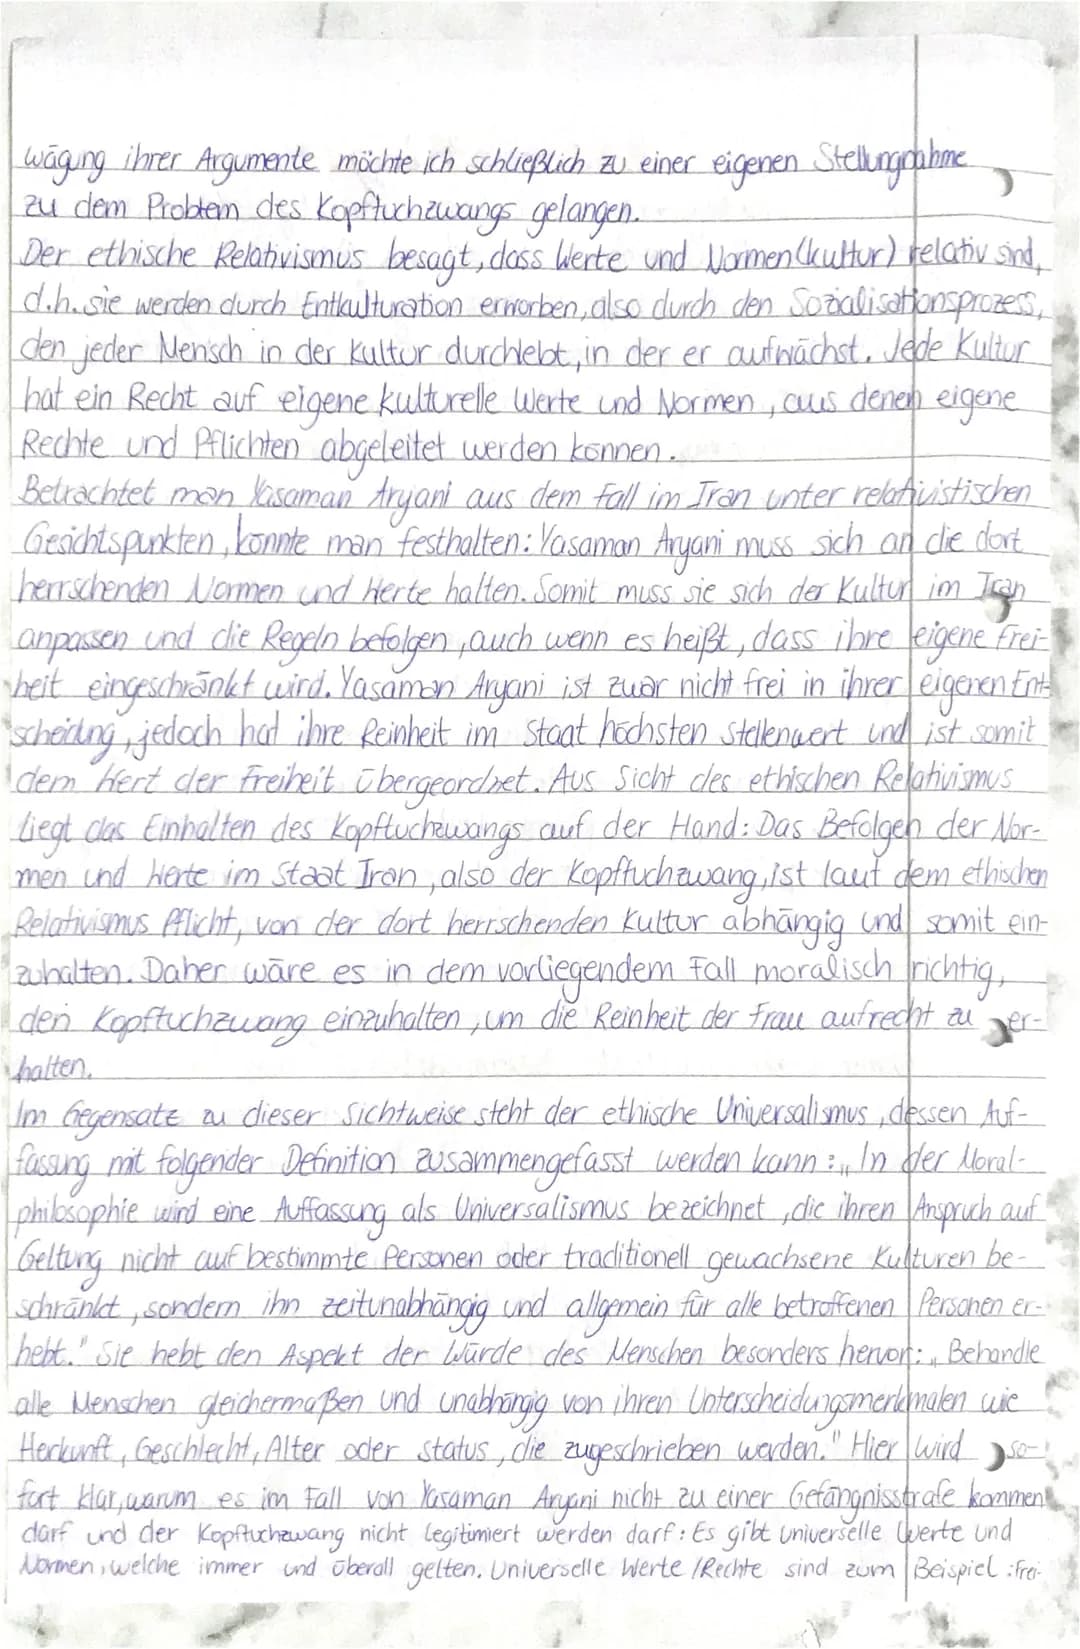 wägung ihrer Argumente möchte ich schließlich zu einer eigenen Stellungnahme
zu dem Problem des Kopftuchzwangs gelangen.
Der ethische Relativismus besagt, dass Werte und Normen (kultur) relativ sind,
d.h. sie werden durch Entkulturation erworben, also durch den Sozialisationsprozess,
den jeder Mensch in der Kultur durchlebt, in der er aufwächst. Jede Kultur
hat ein Recht auf eigene kulturelle Werte und Normen, aus denen eigene
Rechte und Pflichten abgeleitet werden können.
Betrachtet man Yasaman Aryani aus dem Fall im Iran unter relativistischen
Gesichtspunkten, könnte man festhalten: Yasaman Aryani muss sich an die dort
herrschenden Normen und Werte halten. Somit muss sie sich der Kultur im Iran
anpassen und die Regeln befolgen, auch wenn es heißt, dass ihre eigene Frei-
heit eingeschränkt wird. Yasaman Aryani ist zwar nicht frei in ihrer eigenen Ent-
scheidung, jedoch hat ihre Reinheit im Staat höchsten Stellenwert und ist somit
dem Wert der Freiheit übergeordnet. Aus Sicht des ethischen Relativismus
liegt das Einhalten des Kopftuchzwangs auf der Hand: Das Befolgen der Nor-
men und Werte im Staat Iran, also der Kopftuchzwang, ist laut dem ethischen
Relativismus Pflicht, von der dort herrschenden Kultur abhängig und somit ein-
zuhalten. Daher wäre es in dem vorliegendem Fall moralisch richtig,
den Kopftuchzwang einzuhalten, um die Reinheit der Frau aufrecht zu er-
halten.
Im Gegensatz zu dieser Sichtweise steht der ethische Universalismus, dessen Auf-
fassung mit folgender Definition zusammengefasst werden kann: „In der Moral-
philosophie wird eine Auffassung als Universalismus bezeichnet, die ihren Anspruch auf
Geltung nicht auf bestimmte Personen oder traditionell gewachsene Kulturen be-
schränkt, sondern ihn zeitunabhängig und allgemein für alle betroffenen Personen er-
hebt." Sie hebt den Aspekt der Würde des Menschen besonders hervor: „Behandle
alle Menschen gleichermaßen und unabhängig von ihren Unterscheidungsmerkmalen wie
Herkunft, Geschlecht, Alter oder Status, die zugeschrieben werden." Hier wird so-
fort klar, warum es im Fall von Yasaman Aryani nicht zu einer Gefängnisstrafe kommen
darf und der Kopftuchzwang nicht legitimiert werden darf: Es gibt universelle Werte und
Normen, welche immer und überall gelten. Universelle Werte/Rechte sind zum Beispiel: Frei-